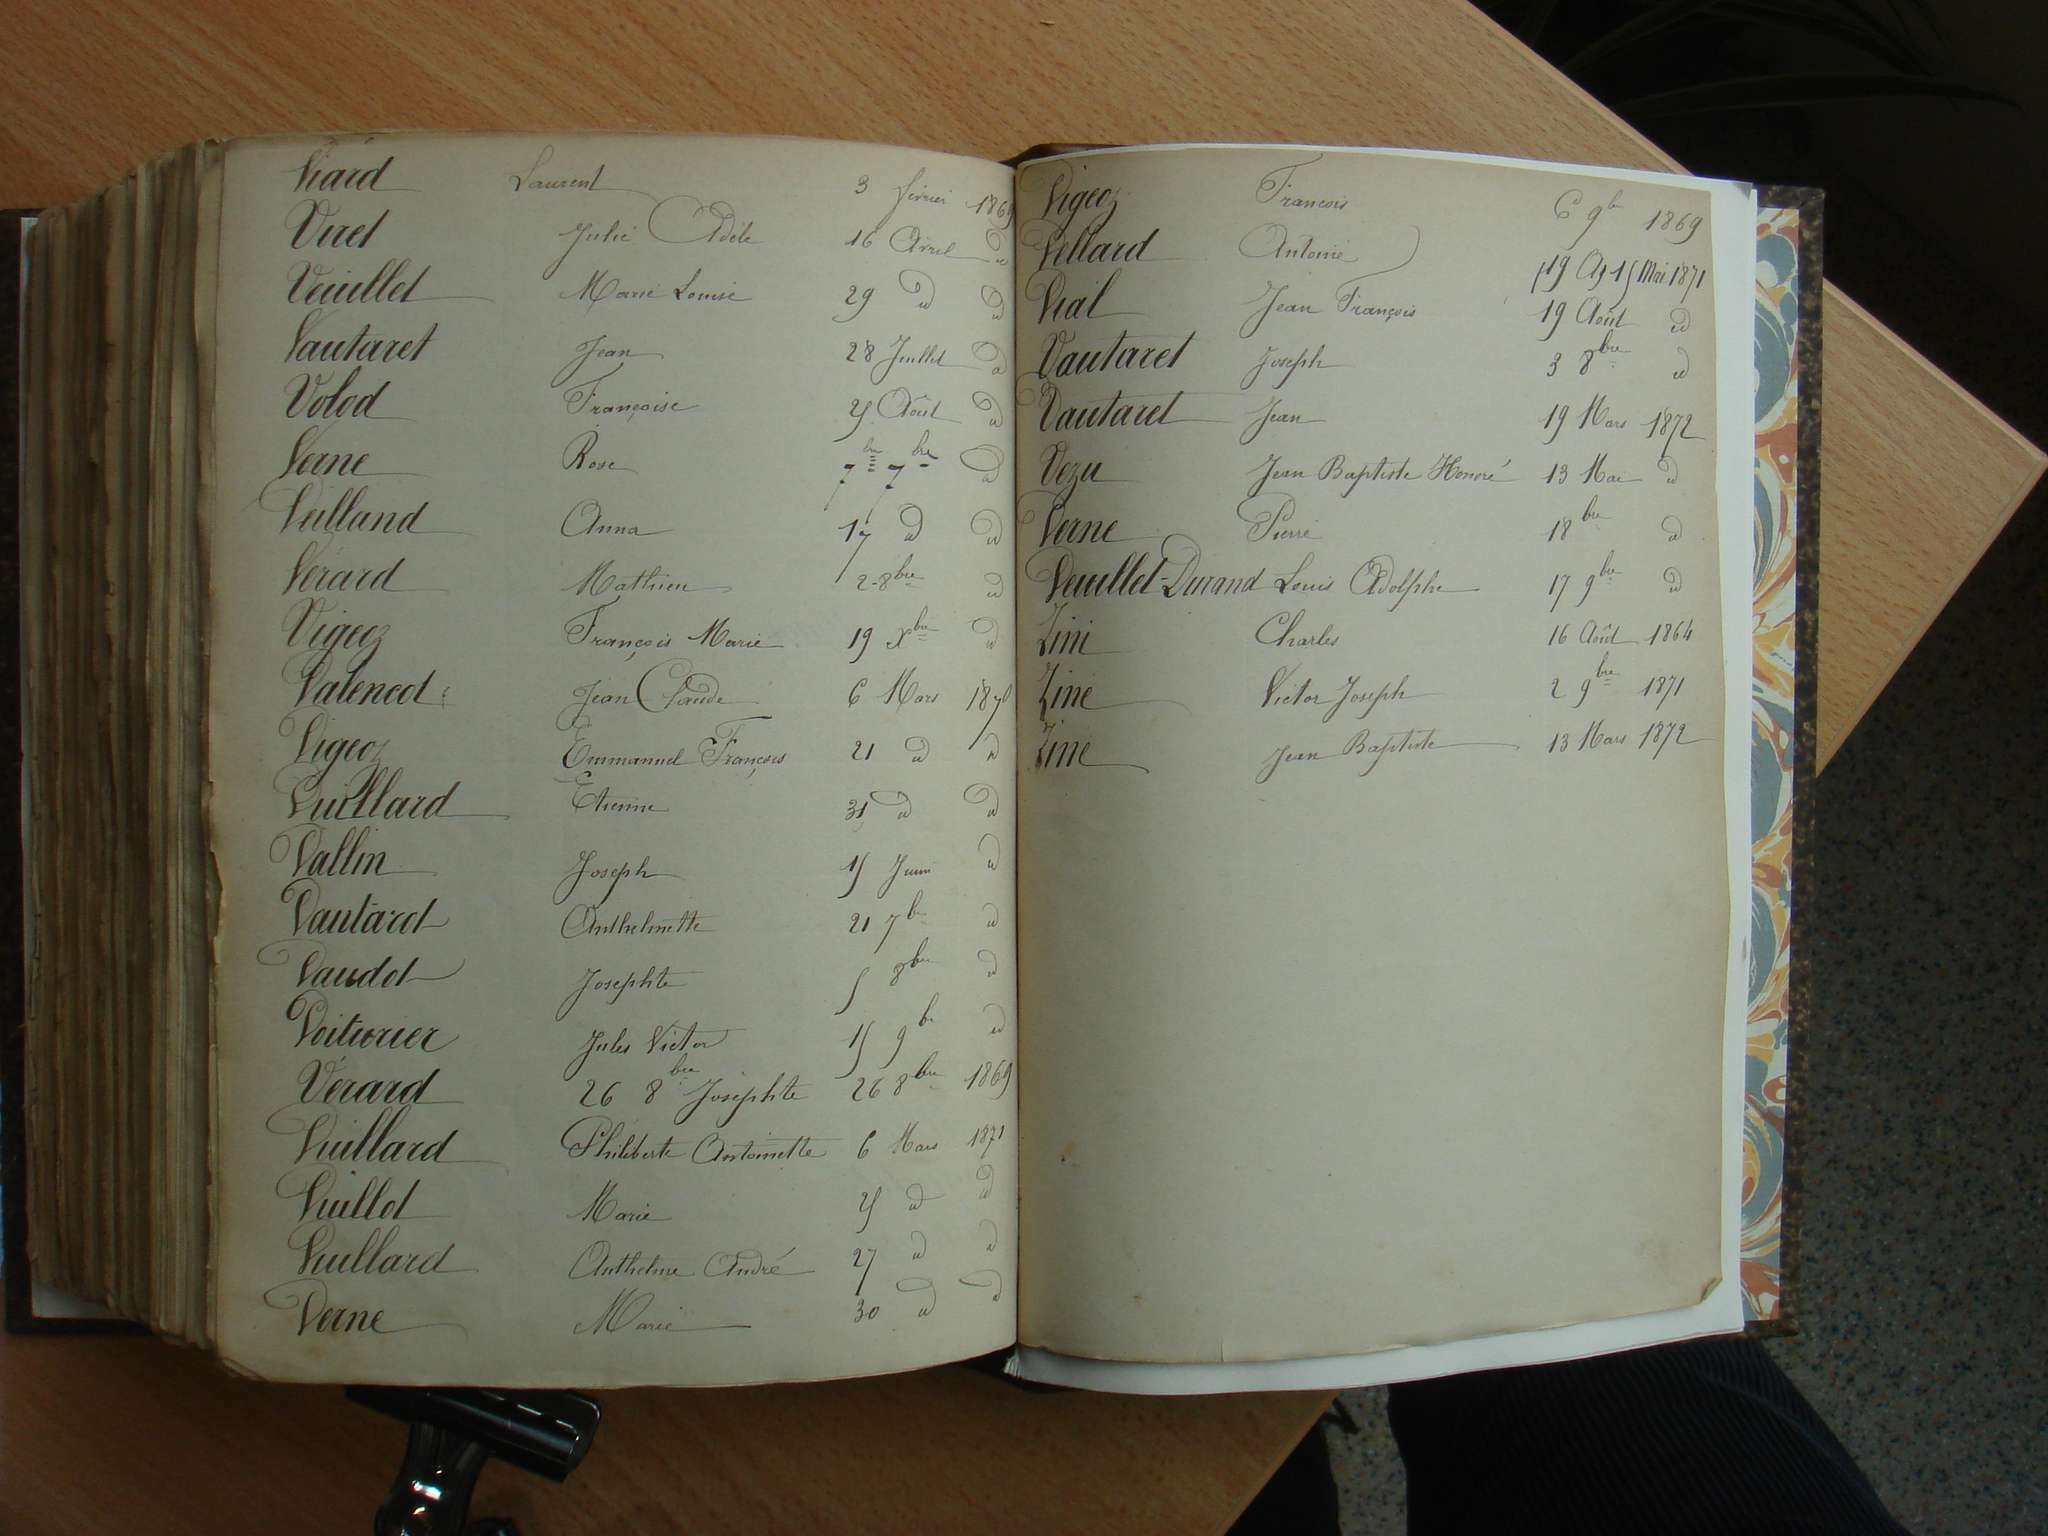 Viard Laurent 3 février 1869
Viret Julie Adèle 16 Avril d
Veuillet Marie Louise 29 d d
Vautaret Jean 28 Juillet d
Volod Françoise 25 Août d
Verne Rose 7bre 7bre d
Veilland Anna 17 d d
Vérard Mathieu 2 8bre d
Vigeoz François Marie 19 Xbre d
Valencot Jean Claude 6 Mars 1870
Vigeoz Emmanuel François 21 d d
Vuillard Etienne 31 d d
Vallin Joseph 15 Juin d
Vautaret Anthelmette 21 7bre d
Vaudot Josephte 5 8bre d
Voiturier Jules Victor 15 9bre d
Vérard 26 8bre Josephte 26 8bre 1869
Vuillard Philiberte Antoinette 6 Mars 1871
Vuillot Marie 25 d d
Vuillard Anthelme André 27 d d
Verne Marie 30 d d
Vigeoz François 6 9bre 1869
Vellard Antoine 15 Mai 1871
Vial Jean François 19 Août d
Vautaret Joseph 3 8bre d
Vautaret Jean 19 Mars 1872
Vezu Jean Baptiste Honoré 13 Mai d
Verne Pierre 1 8bre d
Veuillet-Durand Louis Adolphe 17 9bre d
Zini Charles 16 Août 1864
Zini Victor Joseph 2 9bre 1871
Zini Jean Baptiste 13 Mars 1872